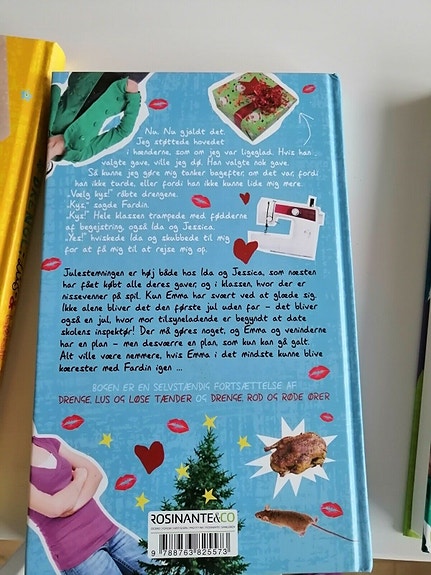 Nu. Nu gjaldt det.
Jeg støttede hovedet
i hænderne, som om jeg var ligeglad. Hvis han
valgte gave, ville jeg dø. Han valgte nok gave.
Så kunne jeg gøre mig tanker bagefter, om det var, fordi
han ikke turde, eller fordi han ikke kunne lide mig mere.
„Vælg kys!“ råbte drengene.
„Kys,“ sagde Fardin.
„Kys!“ Hele klassen trampede med fødderne
af begejstring, også Ida og Jessica.
„Yes!“ hviskede Ida og skubbede til mig
for at få mig til at rejse mig op.
Julestemningen er høj både hos Ida og Jessica, som næsten
har fået købt alle deres gaver, og i klassen, hvor der er
nissevenner på spil. Kun Emma har svært ved at glæde sig.
Ikke alene bliver det den første jul uden far – det bliver
også en jul, hvor mor tilsyneladende er begyndt at date
skolens inspektør! Der må gøres noget, og Emma og veninderne
har en plan – men desværre en plan, som kun kan gå galt.
Alt ville være nemmere, hvis Emma i det mindste kunne blive
kærester med Fardin igen ...
BOGEN ER EN SELVSTÆNDIG FORTSÆTTELSE AF
DRENGE, LUS OG LØSE TÆNDER OG DRENGE, ROD OG RØDE ØRER
ROSINANTE&CO
9 788763 825573